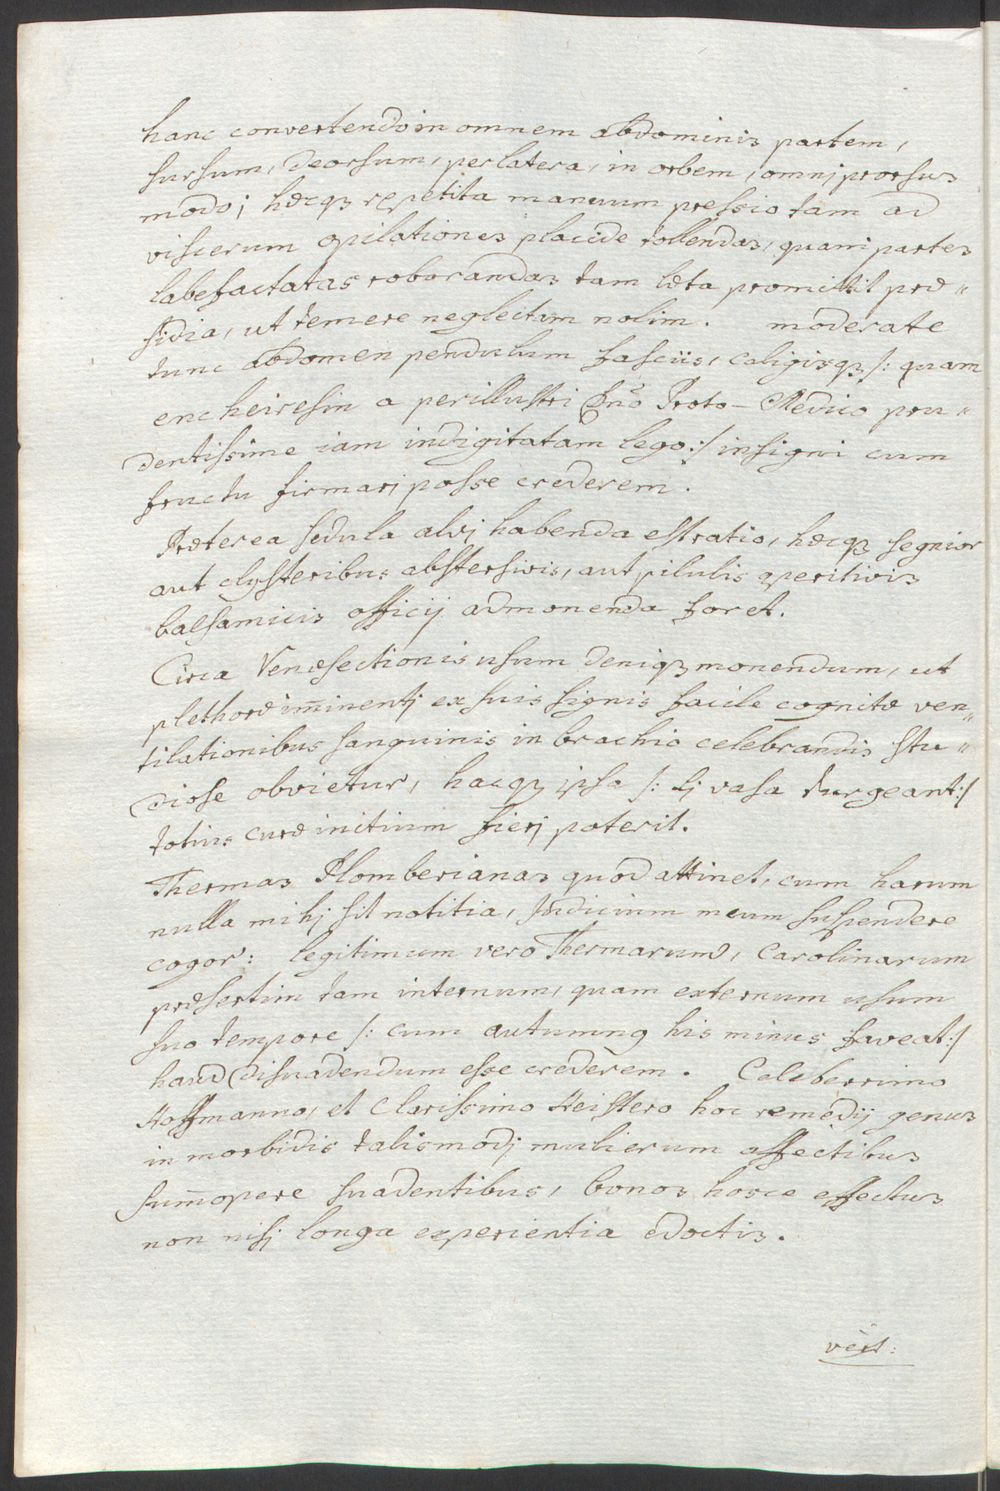 hanc convertendo in omnem abdominis partem,
sursum, deorsum, per latera, in orbem, omnj prorsus
modo; hæcq3 repetita manuum pressio tam ad
viscerum opilationes placide tollendas, quam partes
labefactatas roborandas tam læta promittit præ„
sidia, ut temere neglectum nolim. moderate
tunc abdomen pendulum fasciis, caligisq3 /: quam
encheiresin a perillustri Dno Proto-Medico pru„
dentissime iam indigitatam lego :/ insigni cum
fructu firmarj posse crederem.
Præterea sedula alvj habenda est ratio, hæcq3 segnior
aut clysteribus abstersivis, aut pilulis aperitivis
balsamicis officij admonenda foret.
Circa Venæsectionis usum deniq3 monendum, ut
plethoræ im̄inentj ex suis signis facile cognitæ ven„
tilationibus sanguinis in brachio celebrandis stu„
diose obvietur, hacq3 ipsa /: si vasa turgeant :/
totius curæ initium fierj poterit.
Thermas Plomberianas quod attinet, cum harum
nulla mihj sit notitia, Judicium meum suspendere
cogor: legitimum vero Thermarum, Carolinarum
præsertim tam internum, quam externum usum
suo tempore /: cum autumnus his minus faveat :/
haud disuadendum esse crederem. Celeberrimo
Hoffmanno, et Clarissimo Heistero hoc remedij genus
in morbidis talismodj mulierum affectibus
sum̄opere suadentibus, bonos hosce effectus
non nisj longa experientia edoctis.
vert: